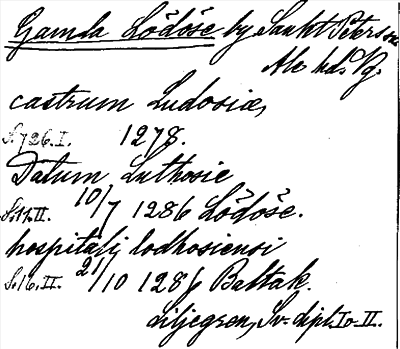 Gamla Lödöse by Sankt Peters sn
Ale hd. Vg.
castrum Ludosiæ,
S. 726. I. 1278.
Datum Luthosie
S. 17. II. 10/7 1286 Lödöse.
hospitalj lodhosiensi
S. 16. II. 2/10 1286 Baltak.
Liljegren, Sv. dipl. I o. II.